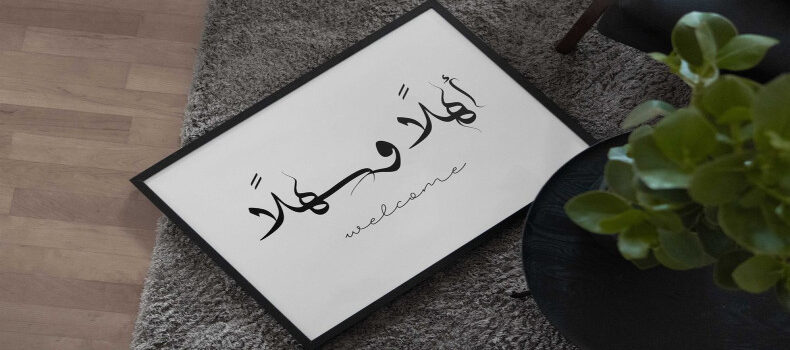 أهلاً وسهلاً
welcome